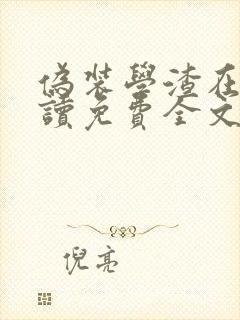 偽裝學渣在
讀免費全文
倪亮